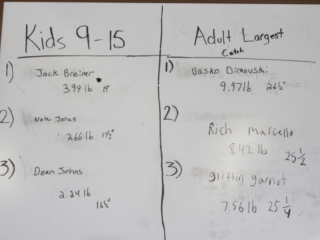 Kids 9-15
1) Jack Breiner
3.99 lb 19"
2) Nate Jones
2.66 lb 17½"
3) Dean Johns
2.24 lb
16½"
Adult Largest
Catch
1) Vasko Dimovski
9.97 lb 26½"
2)
Rich Marcello
8.42 lb 25 1/2
3) Griffin
7.56 lb 25 1/4"